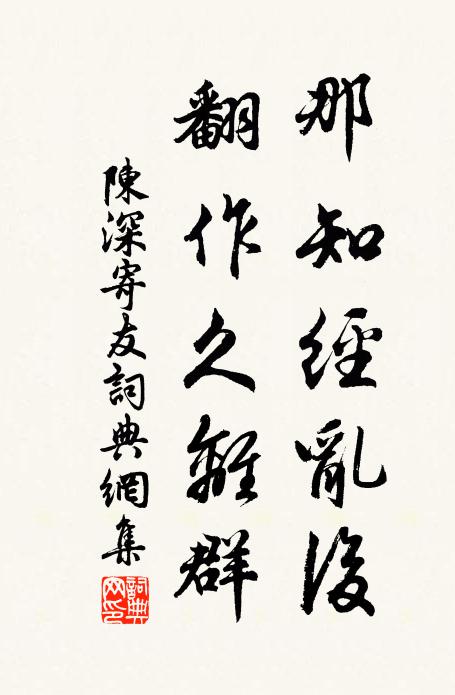 那知經亂後
翻作久離群
陳深寄友詞典網集
詞典
网印